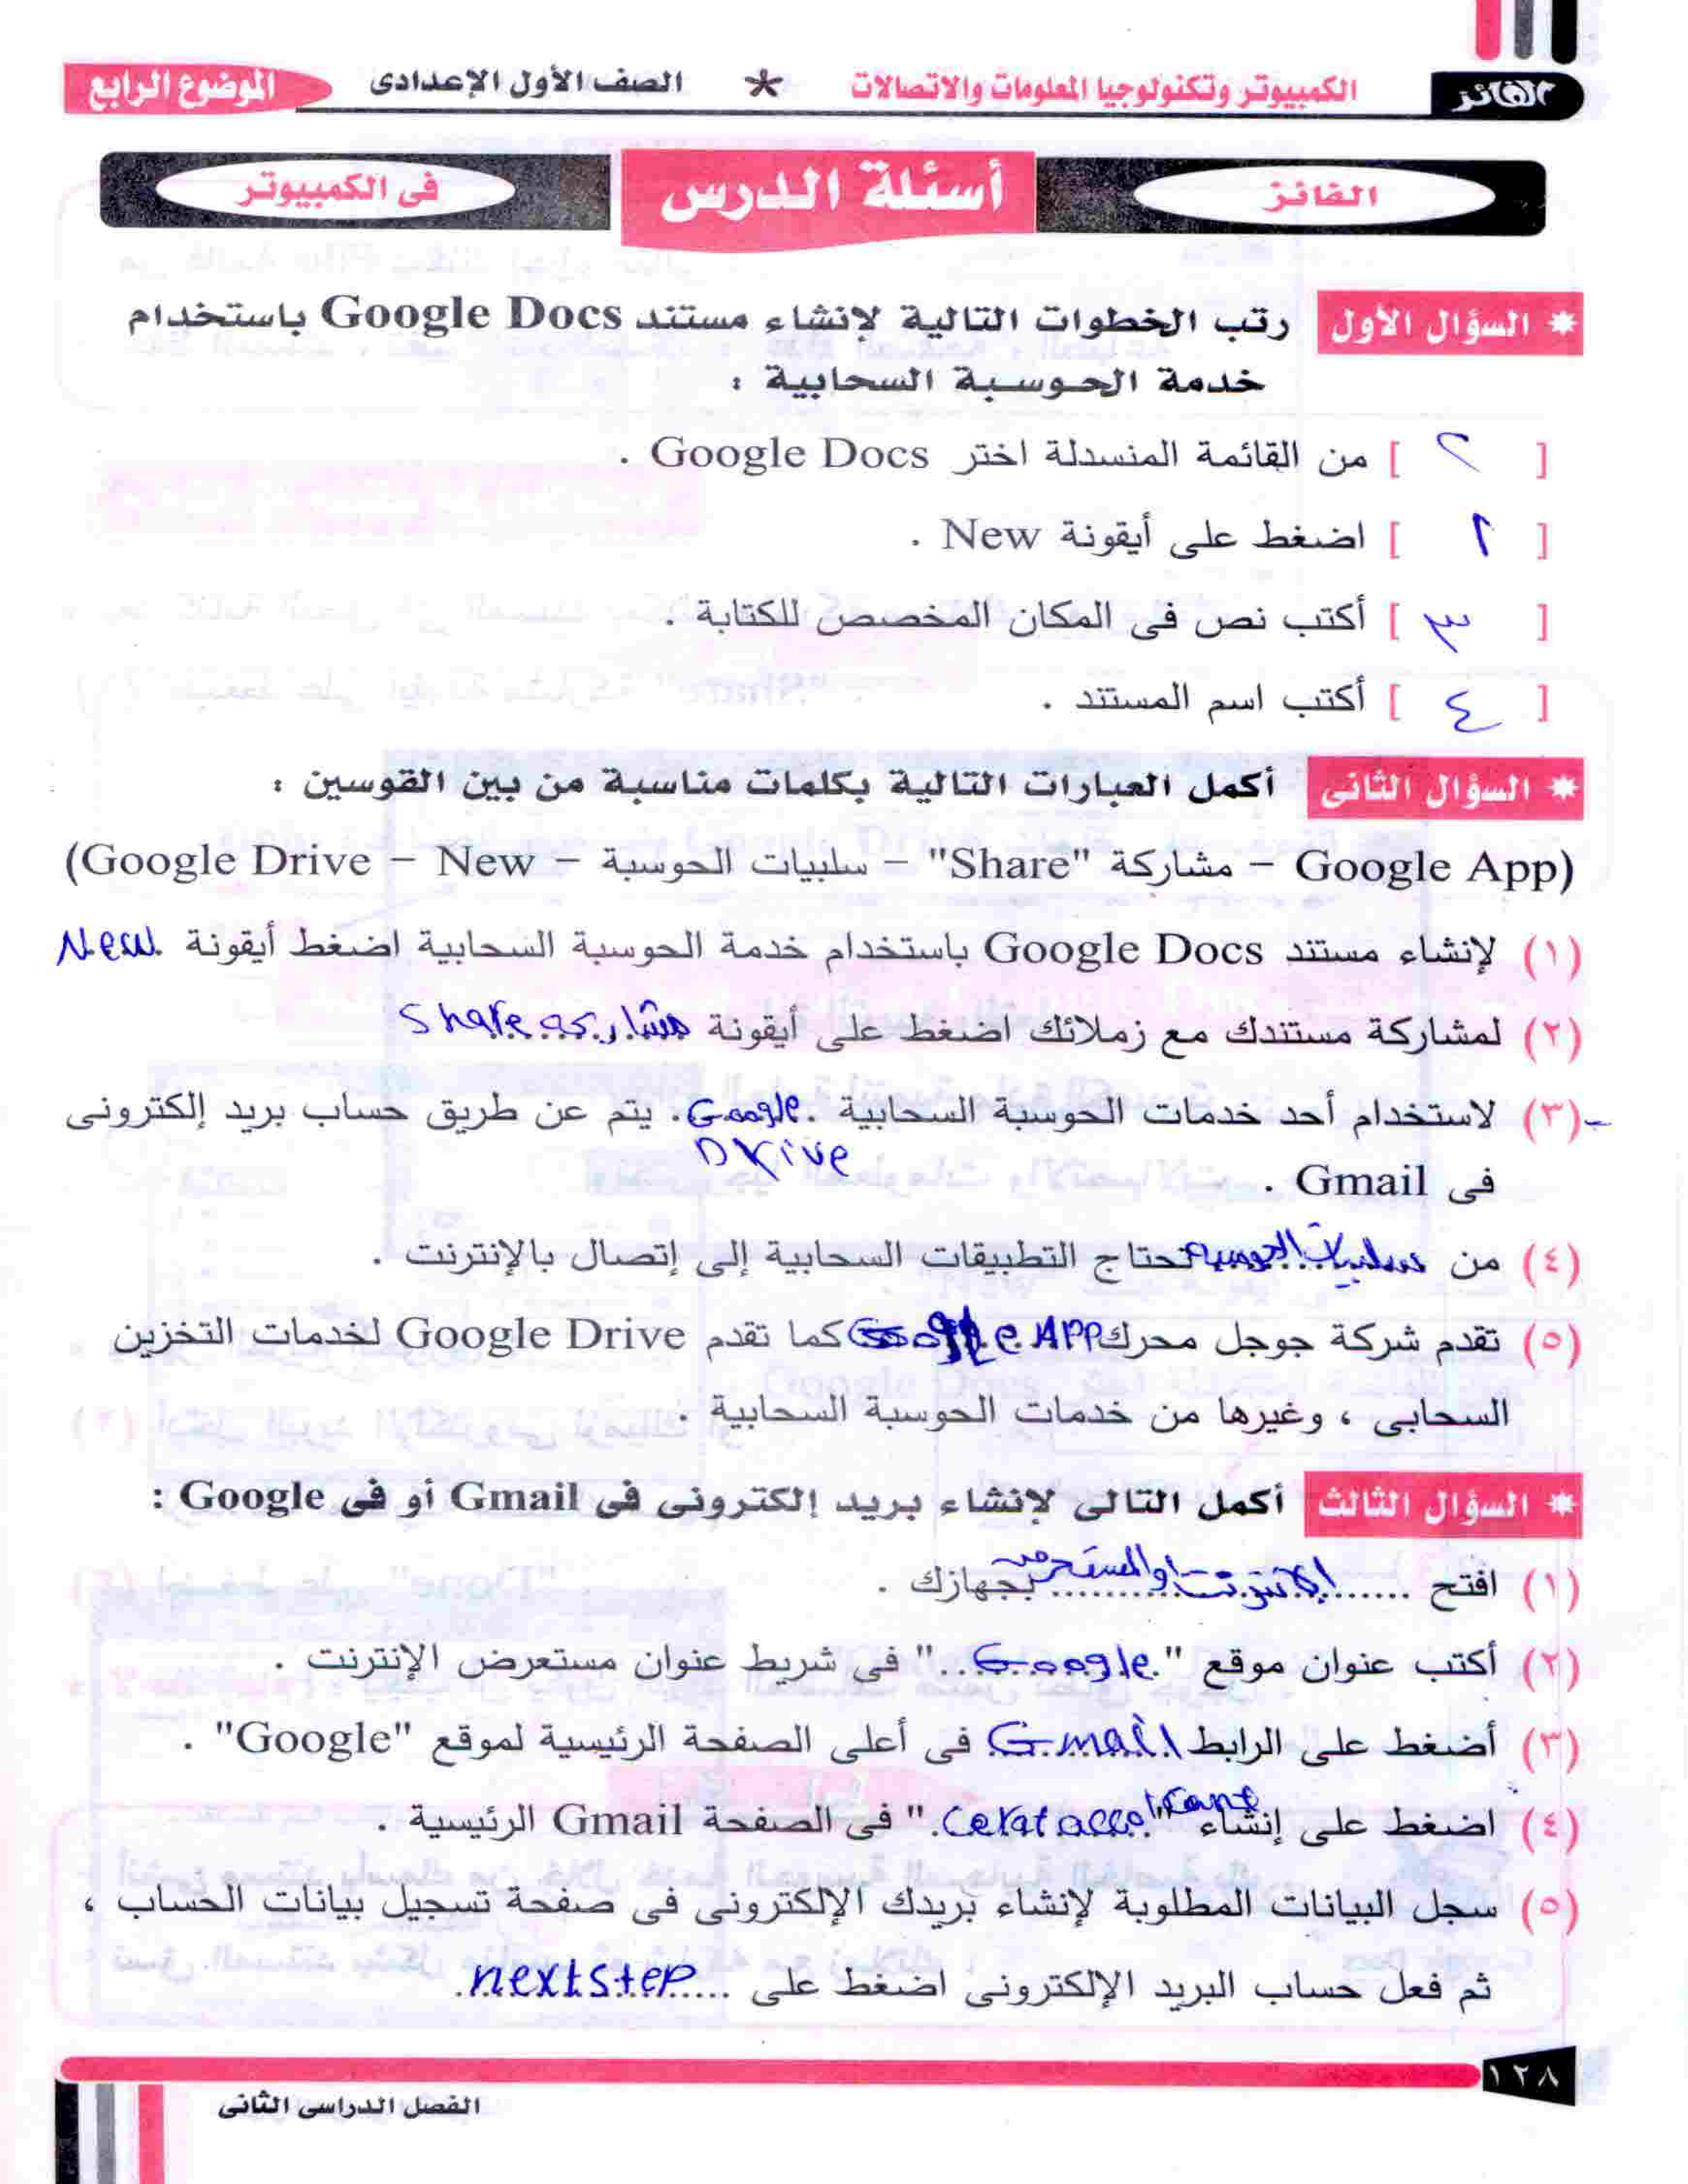 الفائز
الكمبيوتر وتكنولوجيا المعلومات والاتصالات * الصف الأول الإعدادى
الموضوع الرابع
الفائز أسئلة الدرس فى الكمبيوتر
* السؤال الأول رتب الخطوات التالية لإنشاء مستند Google Docs باستخدام
خدمة الحوسبة السحابية :
[ ٢ ] من القائمة المنسدلة اختر Google Docs .
[ ١ ] اضغط على أيقونة New .
[ ٣ ] أكتب نص فى المكان المخصص للكتابة .
[ ٤ ] أكتب اسم المستند .
* السؤال الثانى أكمل العبارات التالية بكلمات مناسبة من بين القوسين :
(Google App – مشاركة "Share" – سلبيات الحوسبة – Google Drive – New)
(١) لإنشاء مستند Google Docs باستخدام خدمة الحوسبة السحابية اضغط أيقونة New.
(٢) لمشاركة مستندك مع زملائك اضغط على أيقونة مشاركة Share
(٣) لاستخدام أحد خدمات الحوسبة السحابية .Google. يتم عن طريق حساب بريد إلكترونى
Drive
فى Gmail .
(٤) من سلبيات الحوسبة تحتاج التطبيقات السحابية إلى إتصال بالإنترنت .
(٥) تقدم شركة جوجل محرك Google APP كما تقدم Google Drive لخدمات التخزين
السحابى ، وغيرها من خدمات الحوسبة السحابية .
* السؤال الثالث أكمل التالى لإنشاء بريد إلكترونى فى Gmail أو فى Google :
(١) افتح ....... الانترنت او المستعرض بجهازك .
(٢) أكتب عنوان موقع ".Google..." فى شريط عنوان مستعرض الإنترنت .
(٣) أضغط على الرابط Gmail فى أعلى الصفحة الرئيسية لموقع "Google" .
(٤) اضغط على إنشاء "Cerat account." فى الصفحة Gmail الرئيسية .
(٥) سجل البيانات المطلوبة لإنشاء بريدك الإلكترونى فى صفحة تسجيل بيانات الحساب ،
ثم فعل حساب البريد الإلكترونى اضغط على .....next step.
١٢٨
الفصل الدراسى الثانى